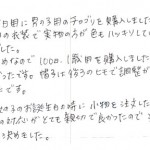 日目に男の子用のチョゴリを購入しました
の衣装で実物の方が色もハッキリして
した。
めなので100の1歳用を購入しました
かったです。帽子は後ろのヒモで調整が
です。
の子の誕生日の時に小物を注文した
の対応がとても親切で良かったので
決めました。